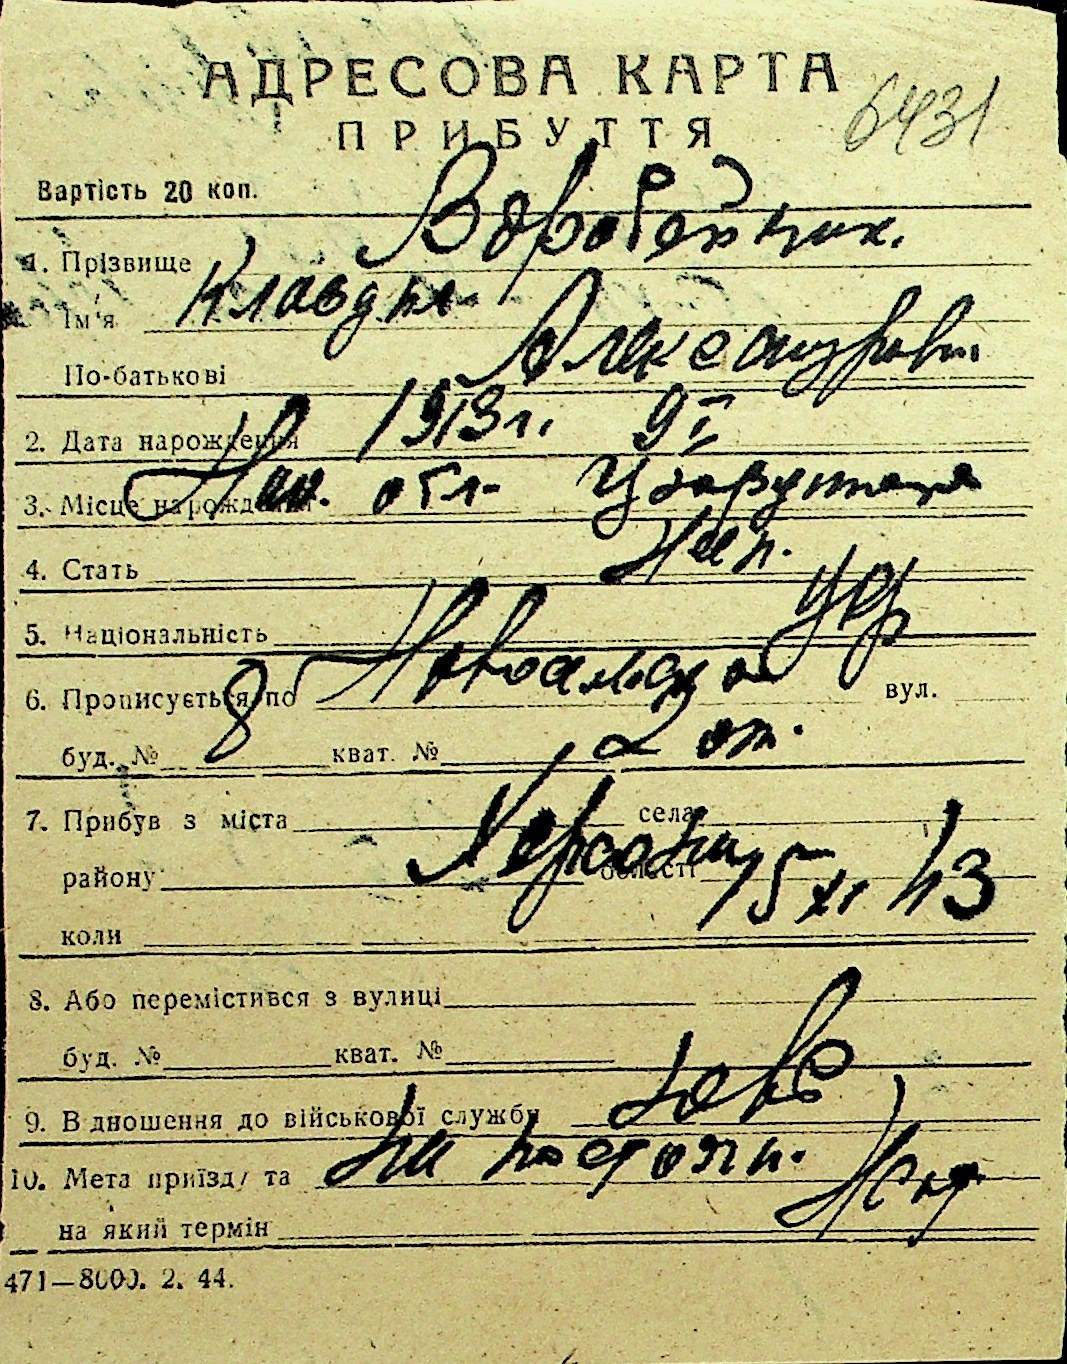 АДРЕСОВА КАРТА
6431
ПРИБУТТЯ
Вартість 20 коп.
1. Прізвище Воробейчик.
Ім'я Клавдия
По-батькові Александровн
2. Дата нарождення 1913 г. 9 I
3. Місце нарождення Ник. обл.
4. Стать жен.
5. Національність укр
6. Прописується по вул.
буд. № 8 кват. № 2 от.
7. Прибув з міста села
району Херсони області
коли 15 XI 43
8. Або перемістився з вулиці
буд. № кват. №
9. В дношення до військової службу
10. Мета приїзду та На постоян. жит
на який термін
471—8000. 2. 44.